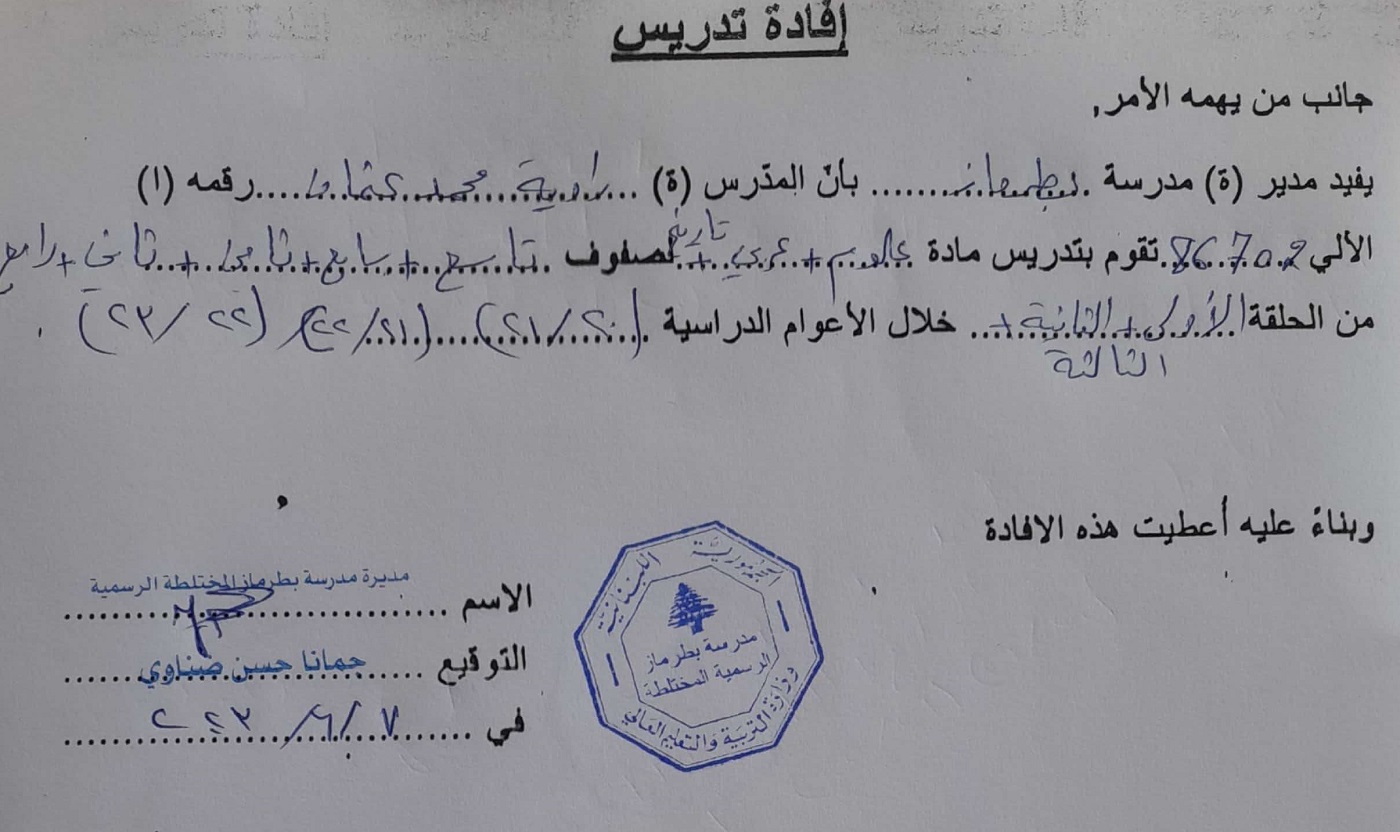 إفادة تدريس
جانب من يهمه الأمر,
يفيد مدير (ة) مدرسة بطرماز بأن المدّرس (ة) راوية محمد رقمه (ا)
الألي 867502 تقوم بتدريس مادة علوم + عربي + تاريخ لصفوف تاسع + سابع + ثامن + ثاني + رابع
من الحلقة الأولى + الثانية + خلال الأعوام الدراسية (٢١/٢٠) (٢٢/٢١) (٢٣/٢٢) .
الثالثة
وبناءً عليه أعطيت هذه الافادة
مديرة مدرسة بطرماز المختلطة الرسمية
الاسم
التوقيع جمانا حسن ضناوي
في ٢٠٢٣/٦/٧
الجمهورية اللبنانية
مدرسة بطرماز
الرسمية المختلطة
وزارة التربية والتعليم العالي